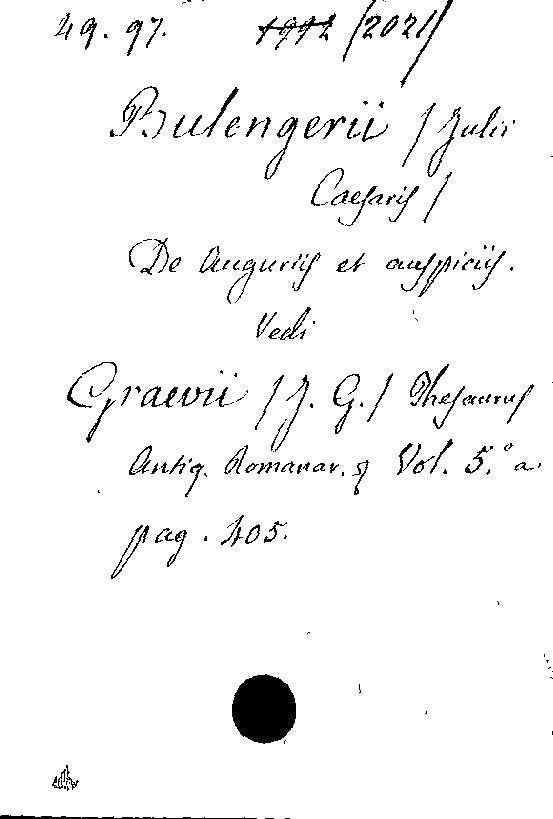 49. 97. 1992 (2021)
Bulengerii / Julii
Caesaris /
De Auguriis et auspiciis.
Vedi
Graevii / J. G. / Thesaurus
Antiq. Romanar. Vol. 5.º a
pag. 405.